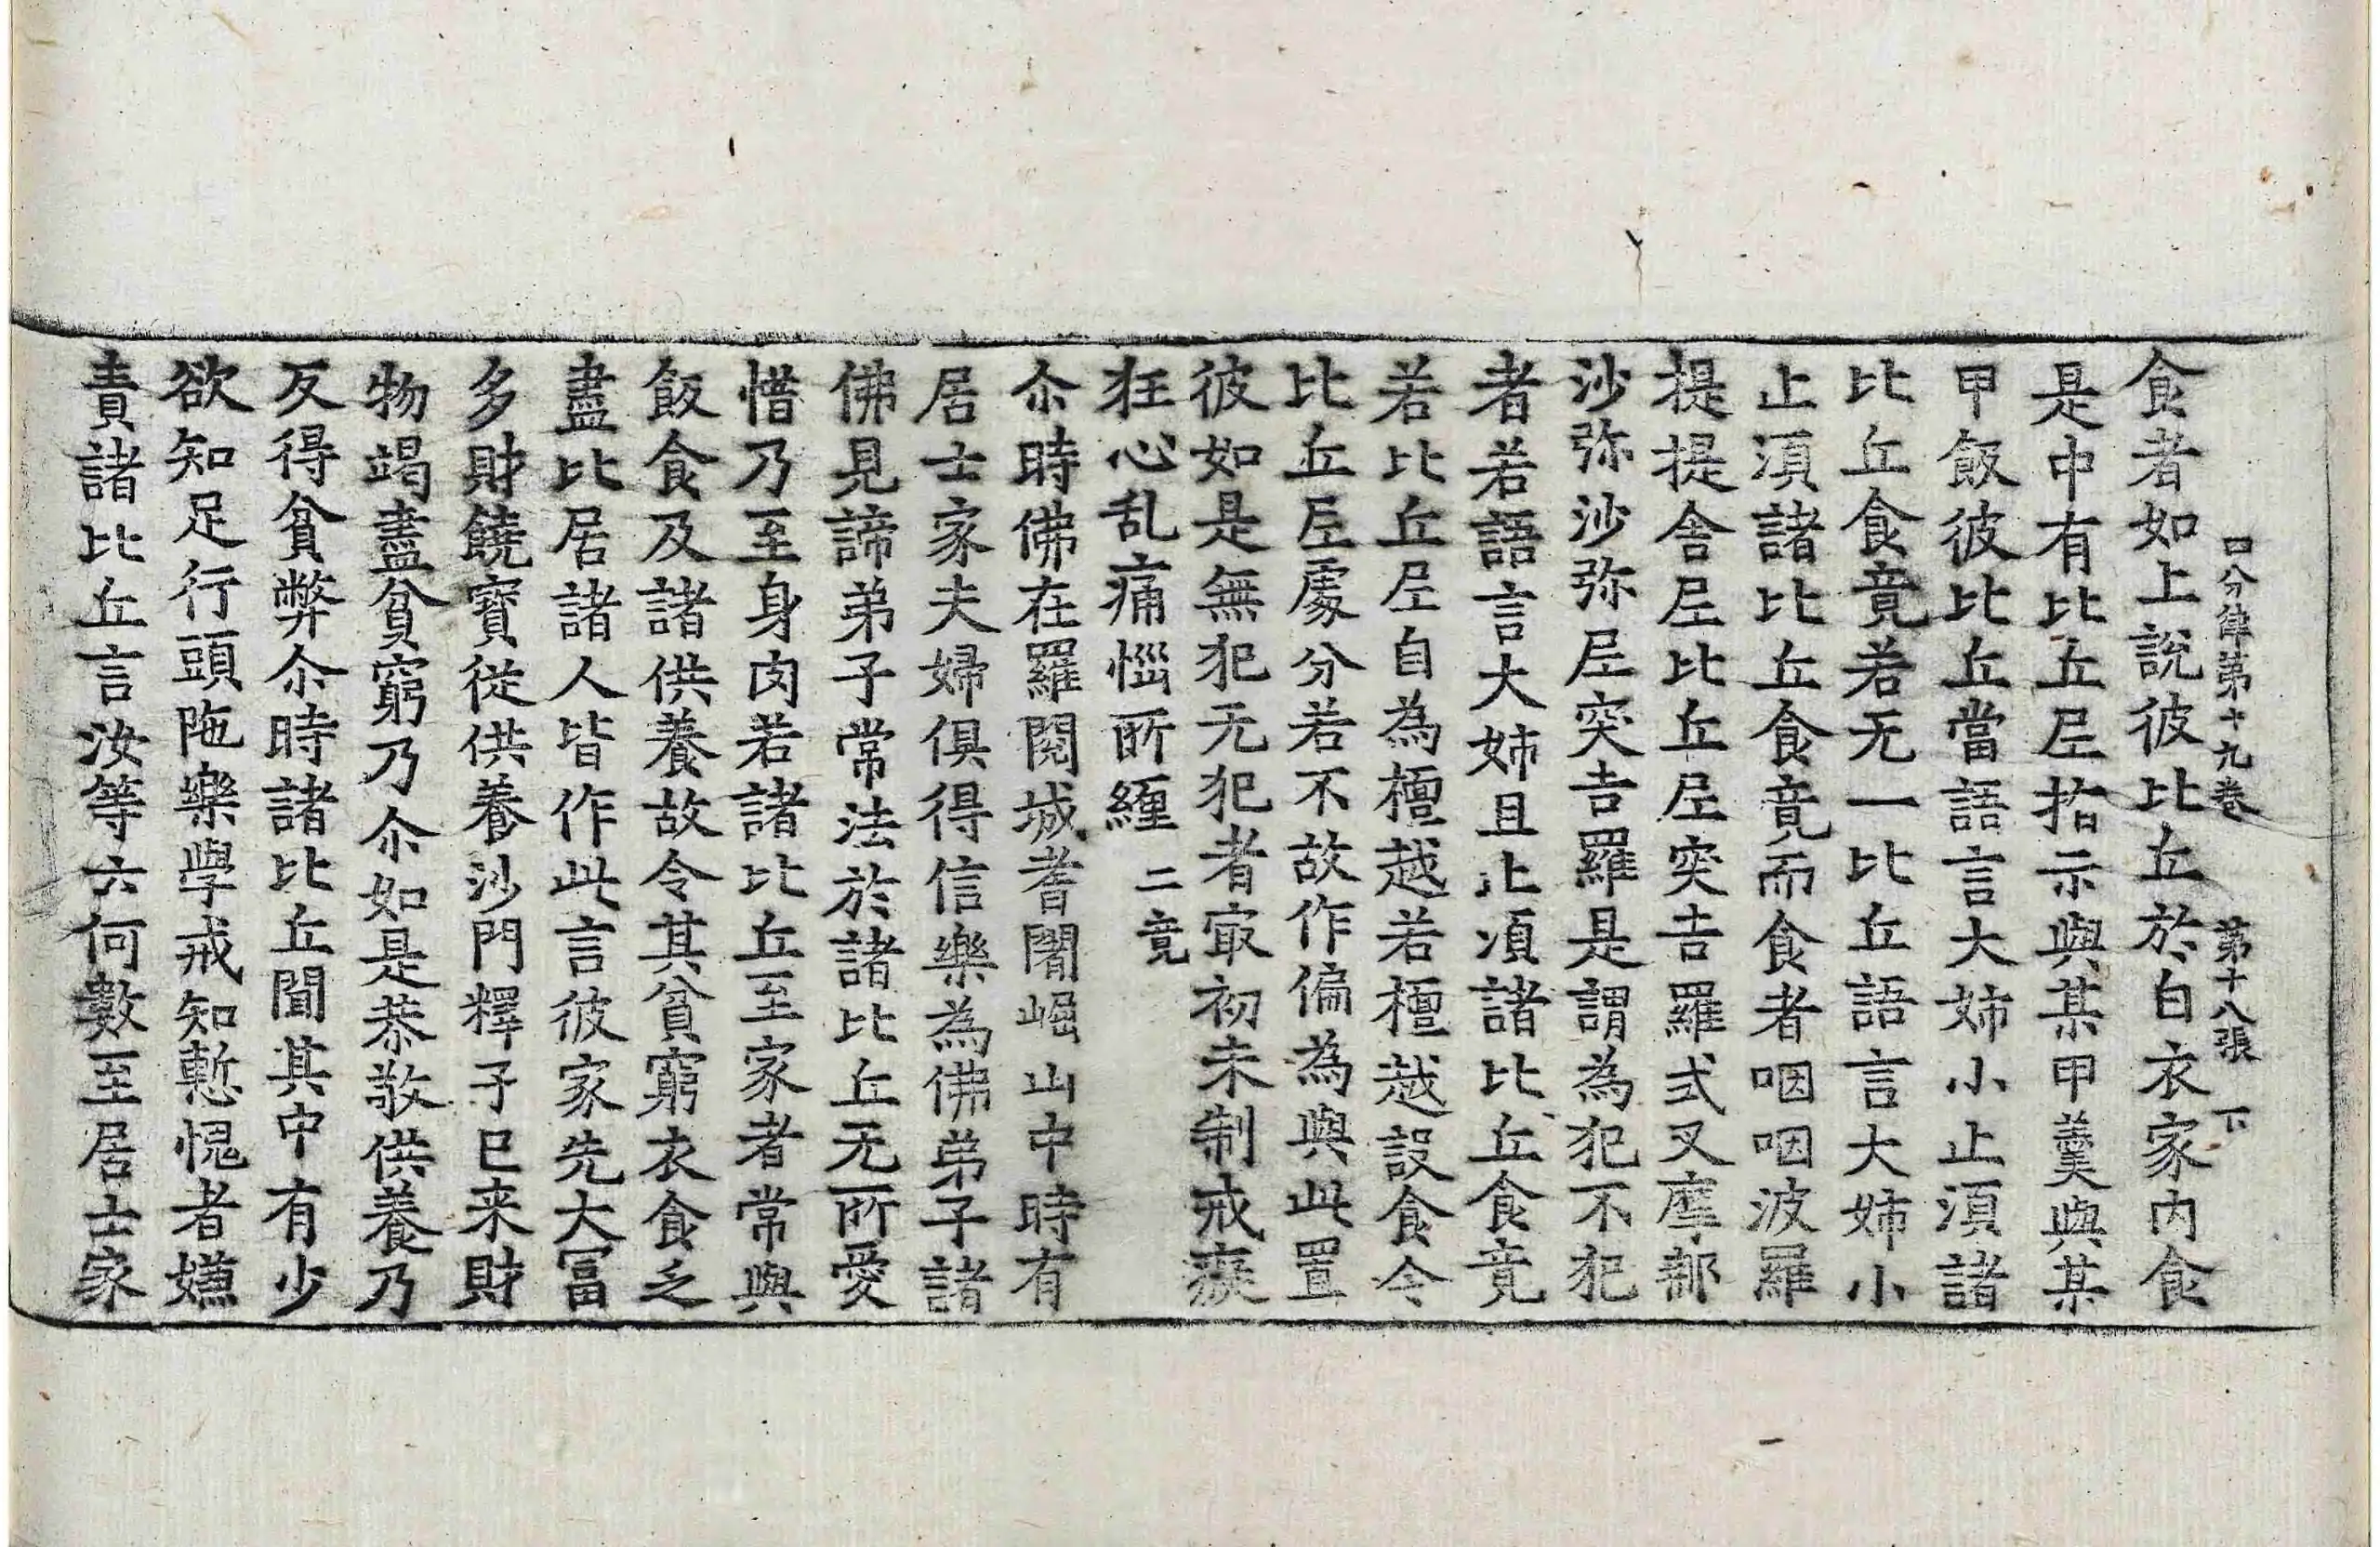 口分律第十九卷 第十八張 下
食者如上說彼比丘於白衣家内食
是中有比丘尼指示與某甲羹與某
甲飯彼比丘當語言大姉小止湏諸
比丘食竟若无一比丘語言大姉小
止湏諸比丘食竟而食者咽咽波羅
提提舍尼比丘尼突吉羅式叉摩那
沙弥沙弥尼突吉羅是謂為犯不犯
者若語言大姉且止湏諸比丘食竟
若比丘尼自為檀越若檀越設食令
比丘尼處分若不故作偏為與此置
彼如是無犯无犯者㝡初未制戒癡
狂心乱痛惱所纏 二竟
尒時佛在羅閱城耆闍崛山中時有
居士家夫婦俱得信樂為佛弟子諸
佛見諦弟子常法於諸比丘无所愛
惜乃至身肉若諸比丘至家者常與
飯食及諸供養故令其貧窮衣食乏
盡比居諸人皆作此言彼家先大冨
多財饒寶從供養沙門釋子已来財
物竭盡貧窮乃尒如是恭敬供養乃
反得貧弊尒時諸比丘聞其中有少
欲知足行頭陁樂學戒知慙愧者嫌
責諸比丘言汝等云何數至居士家